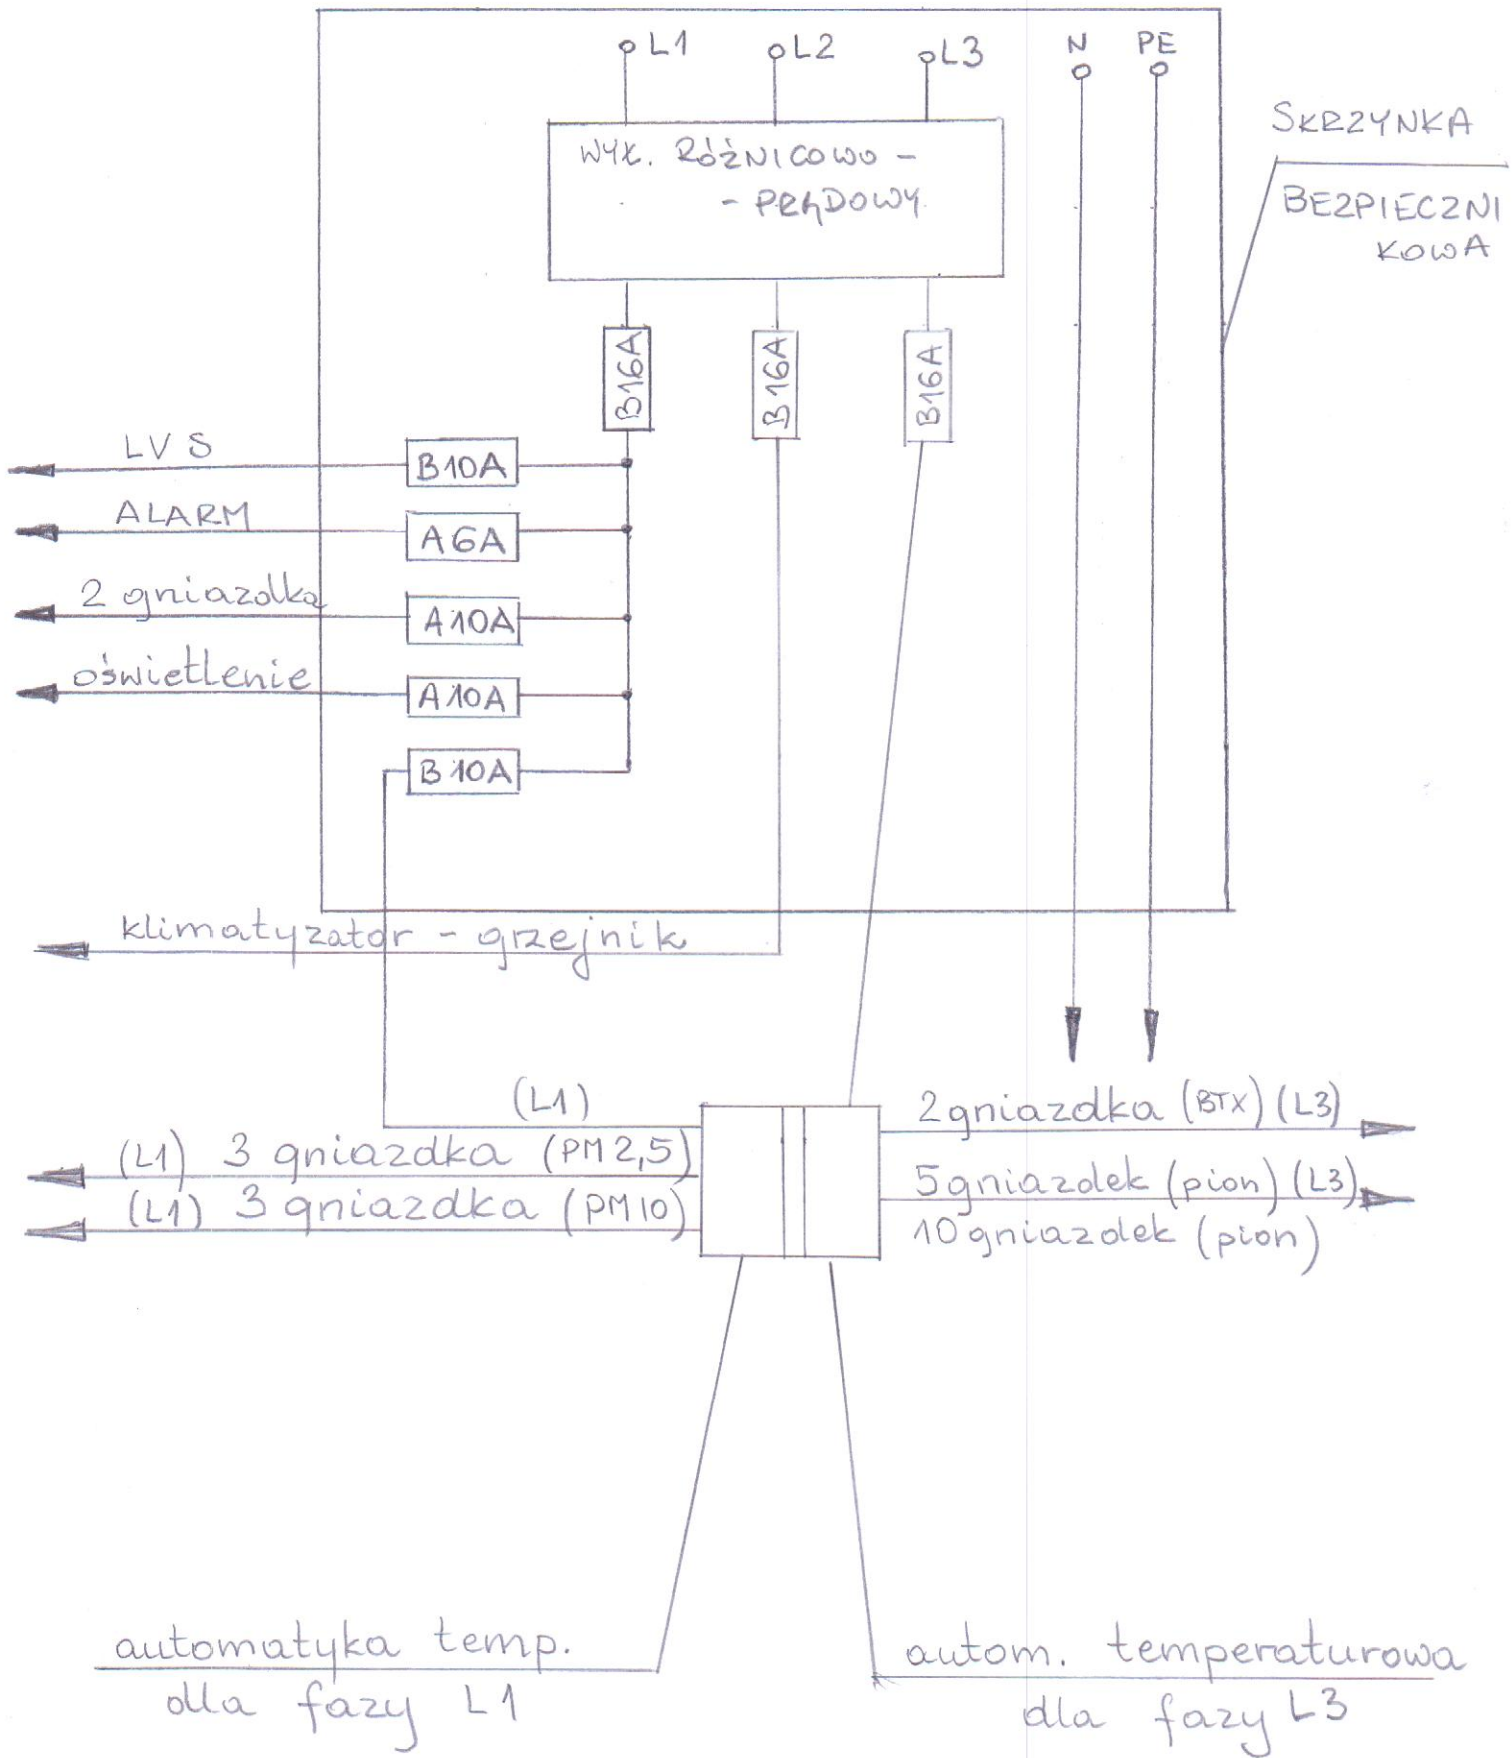 L1
L2
L3
N
PE
SKRZYNKA
BEZPIECZNI
KOWA
WYŁ. RÓŻNICOWO -
- PRĄDOWY
B16A
B16A
B16A
LVS
B10A
ALARM
A6A
2 gniazdka
A10A
oświetlenie
A10A
B10A
klimatyzator - grzejnik
(L1)
2 gniazdka (BTX) (L3)
(L1) 3 gniazdka (PM2,5)
5 gniazdek (pion) (L3)
(L1) 3 gniazdka (PM10)
10 gniazdek (pion)
automatyka temp.
dla fazy L1
autom. temperaturowa
dla fazy L3